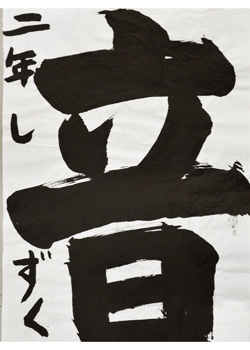 音
二年しずく